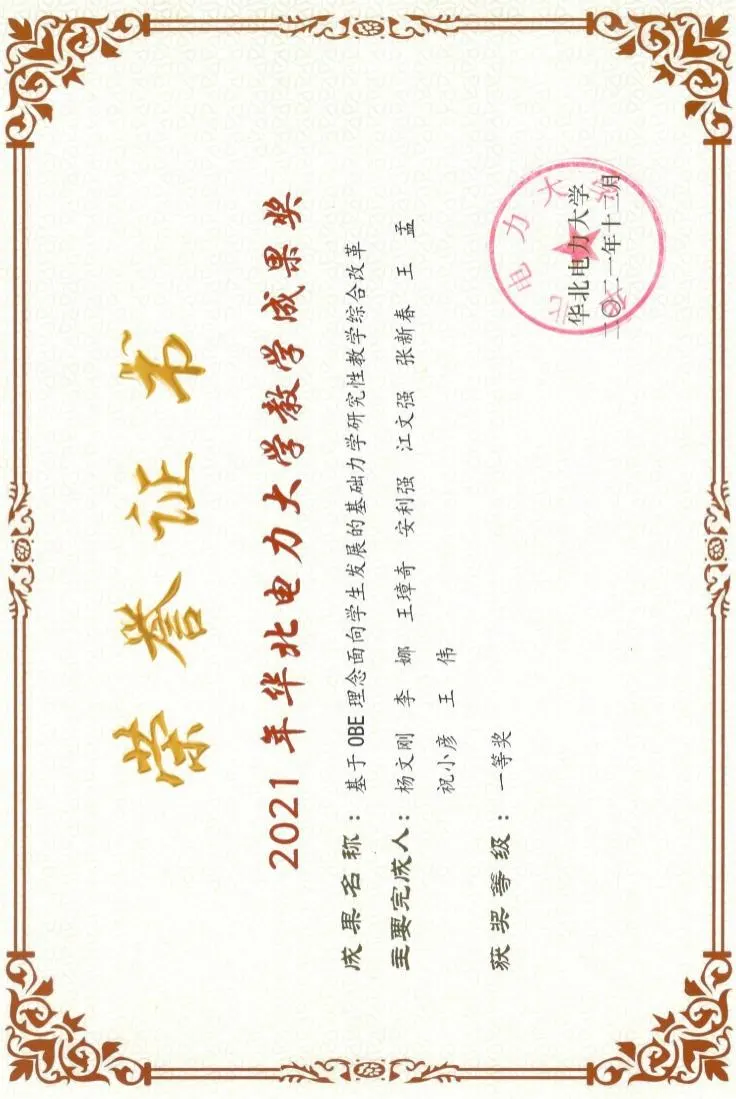 荣誉证书
2021年华北电力大学教学成果奖
成果名称：基于OBE理念面向学生发展的基础力学研究性教学综合改革
主要完成人：杨文刚 李 娜 王璋奇 安利强 江文强 张新春 王 孟
祝小彦 王 伟
获奖等级：一等奖
华北电力大学
二〇二一年十二月
华北电力大学